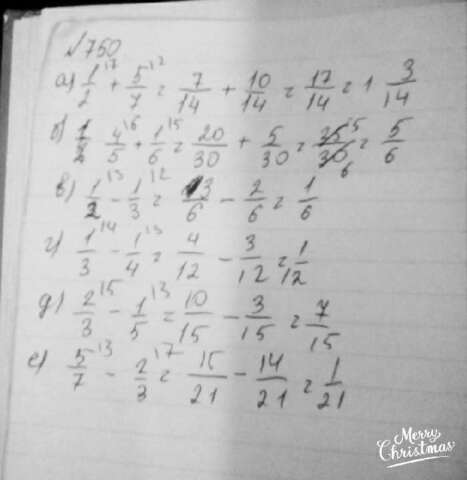 №750
а) 1/2 ¹⁷ + 5/7 ¹² = 7/14 + 10/14 = 17/14 = 1 3/14
б) 4/5 ¹⁶ + 1/6 ¹⁵ = 20/30 + 5/30 = 25/30 = 5/6
в) 1/2 ¹³ - 1/3 ¹² = 3/6 - 2/6 = 1/6
г) 1/3 ¹⁴ - 1/4 ¹³ = 4/12 - 3/12 = 1/12
д) 2/3 ¹⁵ - 1/5 ¹³ = 10/15 - 3/15 = 7/15
е) 5/7 ¹³ - 2/3 ¹⁷ = 15/21 - 14/21 = 1/21
Merry
Christmas